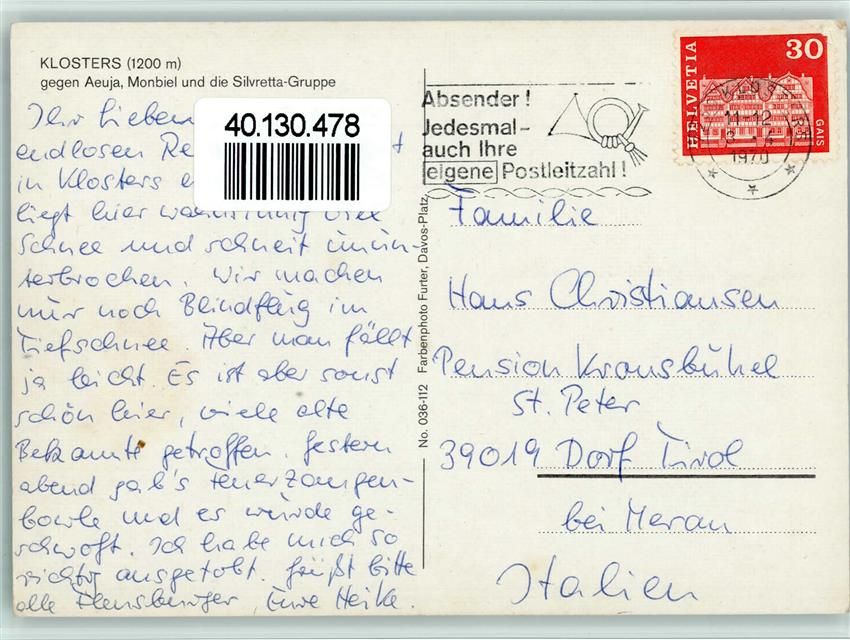 KLOSTERS (1200 m)
gegen Aeuja, Monbiel und die Silvretta-Gruppe
Ihr Lieben
endlosen
in Klosters
liegt hier wahnsinnig viel
Schnee und schneit unun-
terbrochen. Wir machen
nur noch Blindflug im
Tiefschnee. Aber man fällt
ja leicht. Es ist aber sonst
schön hier, viele alte
Bekannte getroffen. Gestern
abend gab's Feuerzangen-
bowle und es wurde ge-
schwoft. Ich habe mich so
richtig ausgetobt. Grüßt bitte
alle Flensburger, Eure Heike.
40.130.478
No. 036-112 Farbenphoto Furter, Davos-Platz
Absender!
Jedesmal-
auch Ihre
eigene Postleitzahl!
HELVETIA
30
GAIS
11-12
1970
Familie
Hans Christiansen
Pension Kronsbühel
St. Peter
39019 Dorf Tirol
bei Meran
Italien